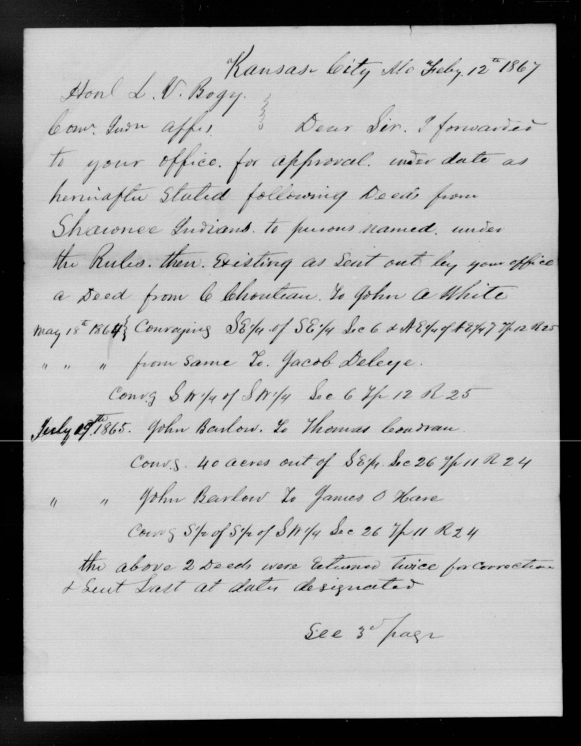 Kansas City Mo Feby. 12th 1867
Honl L. V. Bogy.
Comr. Indn affrs. } Dear Sir. I forwarded
to your office. for approval. under date as
herinafter Stated following Deeds from
Shawnee Indians. to persons named. under
the Rules. then. Existing as Sent out by your office
a Deed from C Chouteau. To John A White
May 18th 1864 } Conveying SE/4 of SE/4 Sec 6 & NE/4 of NE/4 7 Tp 12 R 25
" " " from Same To. Jacob Deleye.
Convg S W/4 of S W/4 Sec 6 Tp 12 R 25
July 19th 1865. John Barlow. To Thomas Condran
Convg. 40 acres out of SE/4 Sec 26 Tp 11 R 24
" " John Barlow To James O Hare
Convg S/2 of S/2 of SW/4 Sec 26 Tp 11 R 24
the above 2 Deeds were Returned Twice for correction
& Sent Last at dates designated
See 3d page